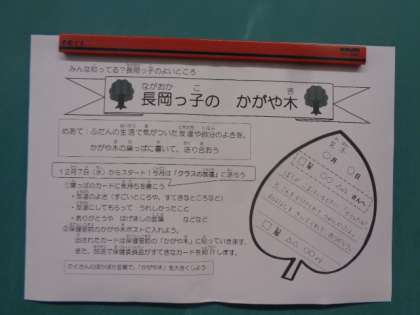 みんな知ってる?長岡っ子のよいところ
ながおか こ き
長岡っ子の かがや木
めあて:ふだんの生活で気がついた友達や自分のよさを、
かがや木の葉っぱに書いて、送り合おう
12月7日(水)からスタート!今月は「クラスの友達」に送ろう
①葉っぱのカードに気持ちを書こう
・友達のよさ(すごいところや、すてきなところなど)
・友達にしてもらって うれしかったこと
・ありがとうや はげましの言葉 などなど
②保健室前のかがや木ポストに入れよう。
出されたカードは保健室前の「かがや木」に貼っていきます。
また、放送で保健委員会がすてきなカードを紹介します。
たくさんのぽかぽか言葉で、「かがや木」を大きくしよう
○年○組
○△ さんへ